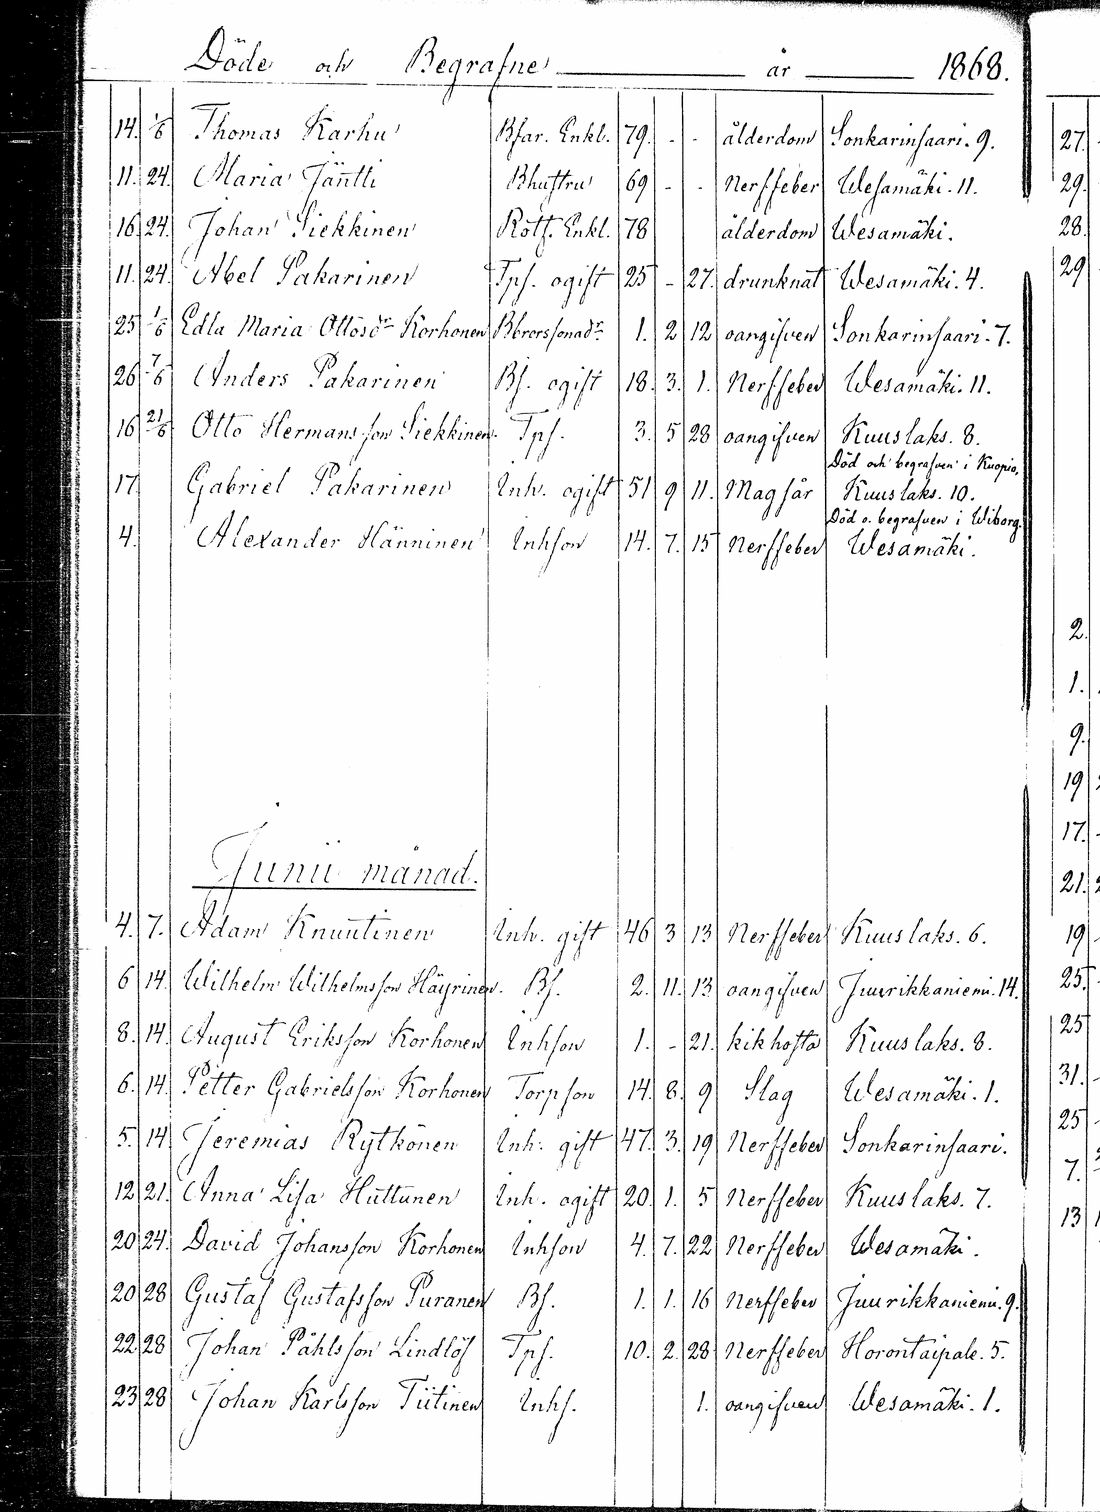 Döde och Begrafne år 1868.
14. 1/6 Thomas Karhu Bfar. Enkl. 79. - - ålderdom Sonkarinsaari. 9.
11. 24. Maria Jäntti Bhustru 69 - - Nerffeber Wesamäki. 11.
16 24. Johan Siekkinen Rotf. Enkl. 78 ålderdom Wesamäki.
11. 24. Abel Pakarinen Tps. ogift 25 - 27. drunknat Wesamäki. 4.
25 1/6 Edla Maria Ottosdr Korhonen Bbrorssonadr 1. 2 12 oangifven Sonkarinsaari. 7.
26 7/6 Anders Pakarinen Bs. ogift 18. 3. 1. Nerffeber Wesamäki. 11.
16 21/6 Otto Hermansson Siekkinen. Tps. 3. 5 28 oangifven Kuuslaks. 8.
Död och begrafven i Kuopio.
17. Gabriel Pakarinen Inh. ogift 51 9 11. Magsår Kuuslaks. 10.
Död o. begrafven i Wiborg.
4. Alexander Hänninen Inhson 14. 7. 15 Nerffeber Wesamäki.
Junii månad.
4. 7. Adam Knuutinen Inh. gift 46 3 13 Nerffeber Kuuslaks. 6.
6 14. Wilhelm Wilhelmsson Häyrinen. Bs. 2. 11. 13 oangifven Juurikkaniemi. 14.
8. 14. August Eriksson Korhonen Inhson 1. - 21. kikhosta Kuuslaks. 8.
6. 14. Petter Gabrielsson Korhonen Torpson 14. 8. 9 Slag Wesamäki. 1.
5. 14. Jeremias Rytkönen Inh. gift 47. 3. 19 Nerffeber Sonkarinsaari.
12 21. Anna Lisa Huttunen Inh. ogift 20. 1. 5 Nerffeber Kuuslaks. 7.
20 24. David Johansson Korhonen Inhson 4. 7. 22 Nerffeber Wesamäki.
20 28 Gustaf Gustafsson Puranen Bs. 1. 1. 16 Nerffeber Juurikkaniemi. 9.
22 28 Johan Påhlsson Lindlöf Tps. 10. 2. 28 Nerffeber Horontaipale. 5.
23 28 Johan Karlsson Tiitinen Inhs. 1. oangifven Wesamäki. 1.
27.
29.
28.
29
2.
1.
9.
19
17.
21.
19
25.
25
31.
25
7.
13